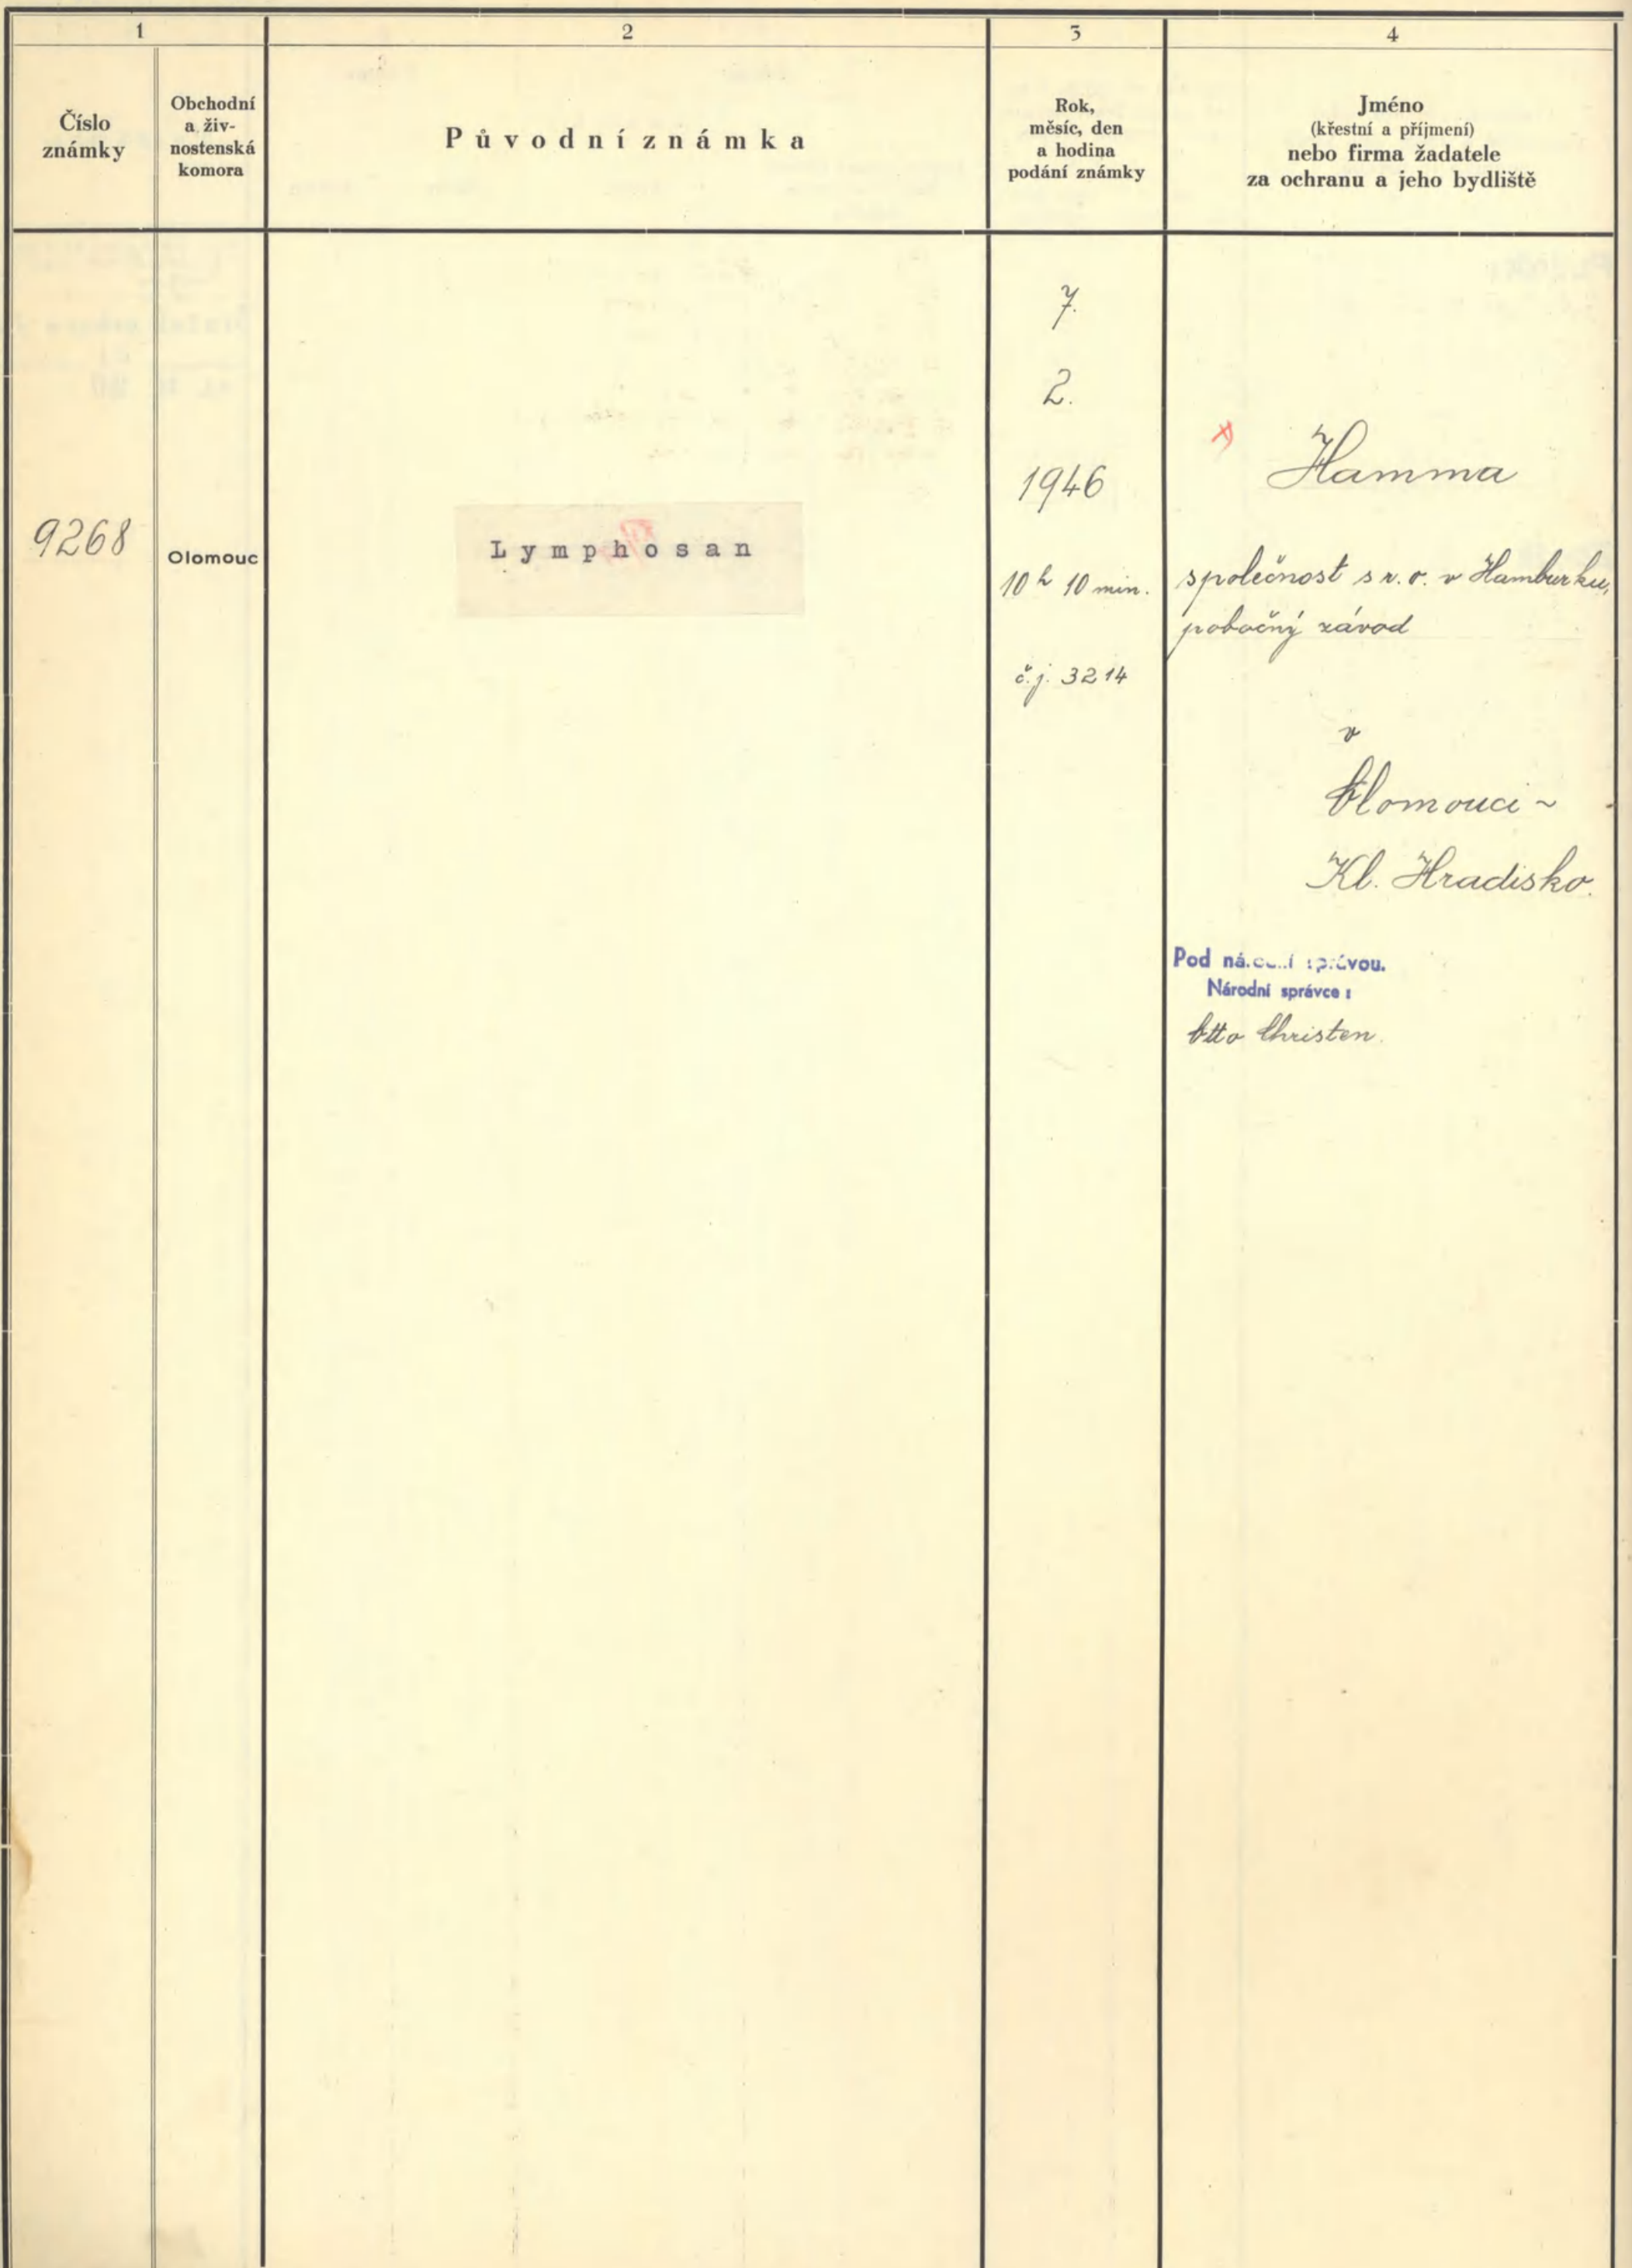 1
2
3
4
Číslo
známky
Obchodní
a živ-
nostenská
komora
Původní známka
Rok,
měsíc, den
a hodina
podání známky
Jméno
(křestní a příjmení)
nebo firma žadatele
za ochranu a jeho bydliště
9268
Olomouc
Lymphosan
7.
2.
1946
10 h 10 min.
č.j. 3214
Hamma
společnost s r. o. v Hamburku,
pobočný závod
v
Olomouci ~
Kl. Hradisko.
Pod národní správou.
Národní správce :
Otto Christen.